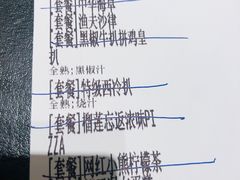 [套餐]中华海草
[套餐]渔夫沙律
[套餐]黑椒牛扒拼鸡皇
扒
全熟;黑椒汁
[套餐]特级西冷扒
全熟;烧汁
[套餐]榴莲忘返浓味PI
ZZA
[套餐]网红小熊柠檬茶